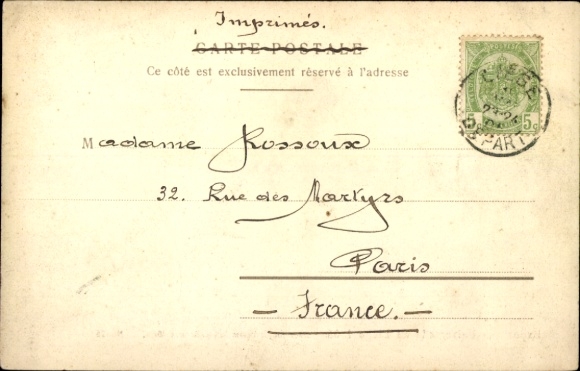 Imprimés.
CARTE POSTALE
Ce côté est exclusivement réservé à l'adresse
LIEGE
DEPART
5c
Madame Rossoux
32. Rue des Martyrs
Paris
— France. —